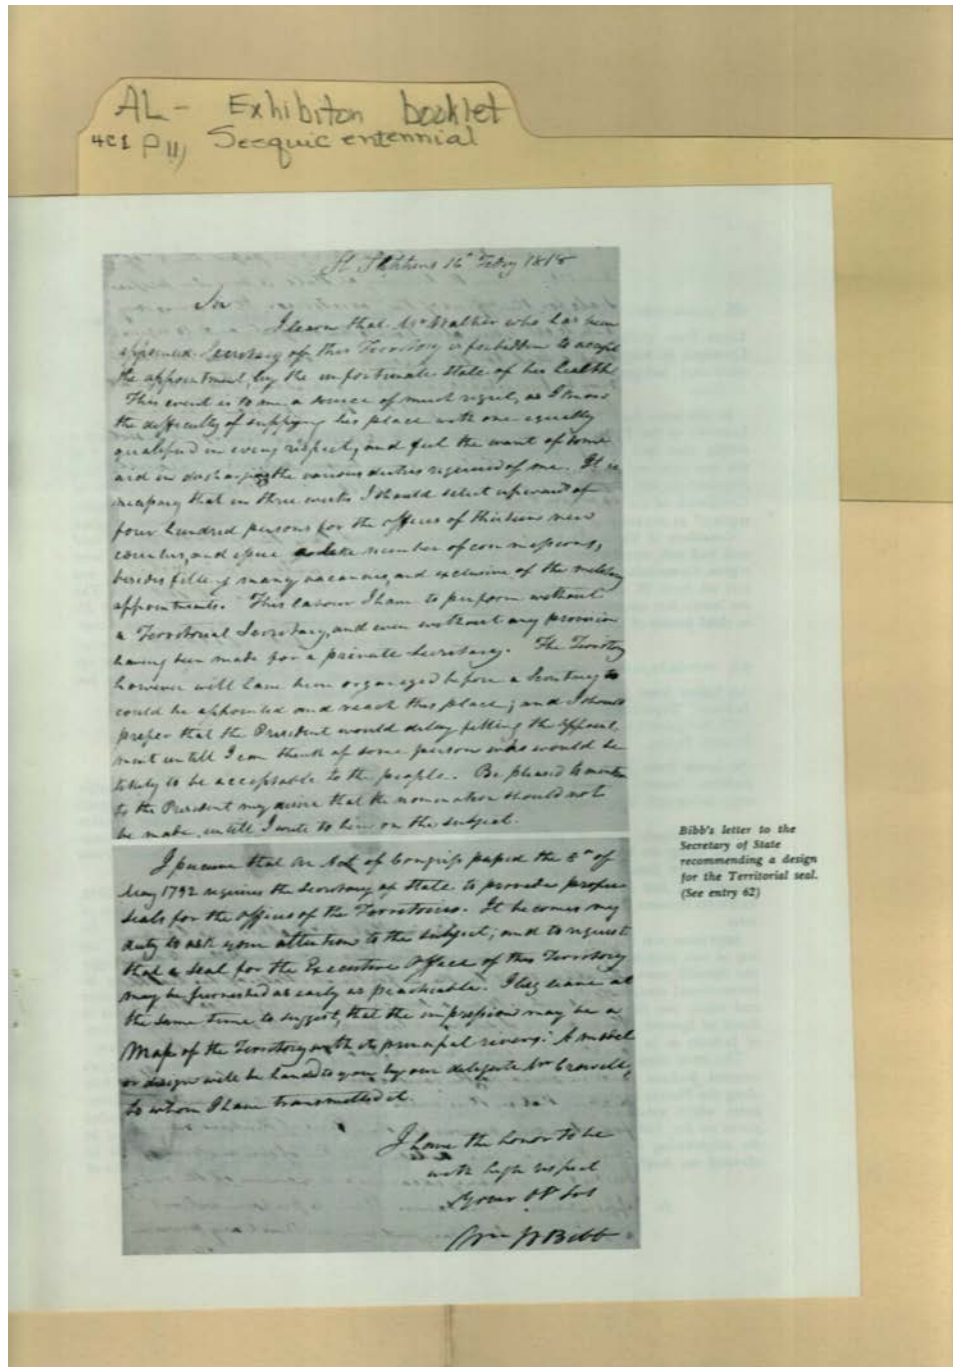 AL - Exhibiton booklet
4C1 P 11, Sesquicentennial
St Stephens 16th Feby 1818
Sir
I learn that Mr Walker who has been
appointed Secretary of this Territory is forbidden to accept
the appointment, by the unfortunate state of his health.
This event is to me a source of much regret, as I know
the difficulty of supplying his place with one equally
qualified in every respect, and feel the want of some
aid in discharging the various duties required of me. It is
necessary that in three weeks I should select upward of
four hundred persons for the offices of thirteen new
counties, and issue a like number of commissions,
besides filling many vacancies, and exclusive of the military
appointments. This labour I have to perform without
a Territorial Secretary, and even without any provision
having been made for a private Secretary. The Territory
however will have been organized before a Secretary to
could be appointed and reach this place; and I should
prefer that the President would delay filling the appoint
ment untill I can think of some person who would be
likely to be acceptable to the people. Be pleased to mention
to the President my desire that the nomination should not
be made, untill I write to him on the subject.
I presume that an Act of Congress passed the 8th of
May 1792 requires the Secretary of State to provide proper
seals for the offices of the Territories. It becomes my
duty to ask your attention to the subject; and to request
that a seal for the Executive Office of this Territory
may be furnished as early as practicable. I beg leave at
the same time to suggest, that the impression may be a
Map of the Territory with its principal rivers. A model
or design will be handed to you by our delegate Mr Crowell,
to whom I have transmitted it.
I have the honor to be
with high respect
Your Ob Svt
Wm W Bibb
Bibb's letter to the
Secretary of State
recommending a design
for the Territorial seal.
(See entry 62)